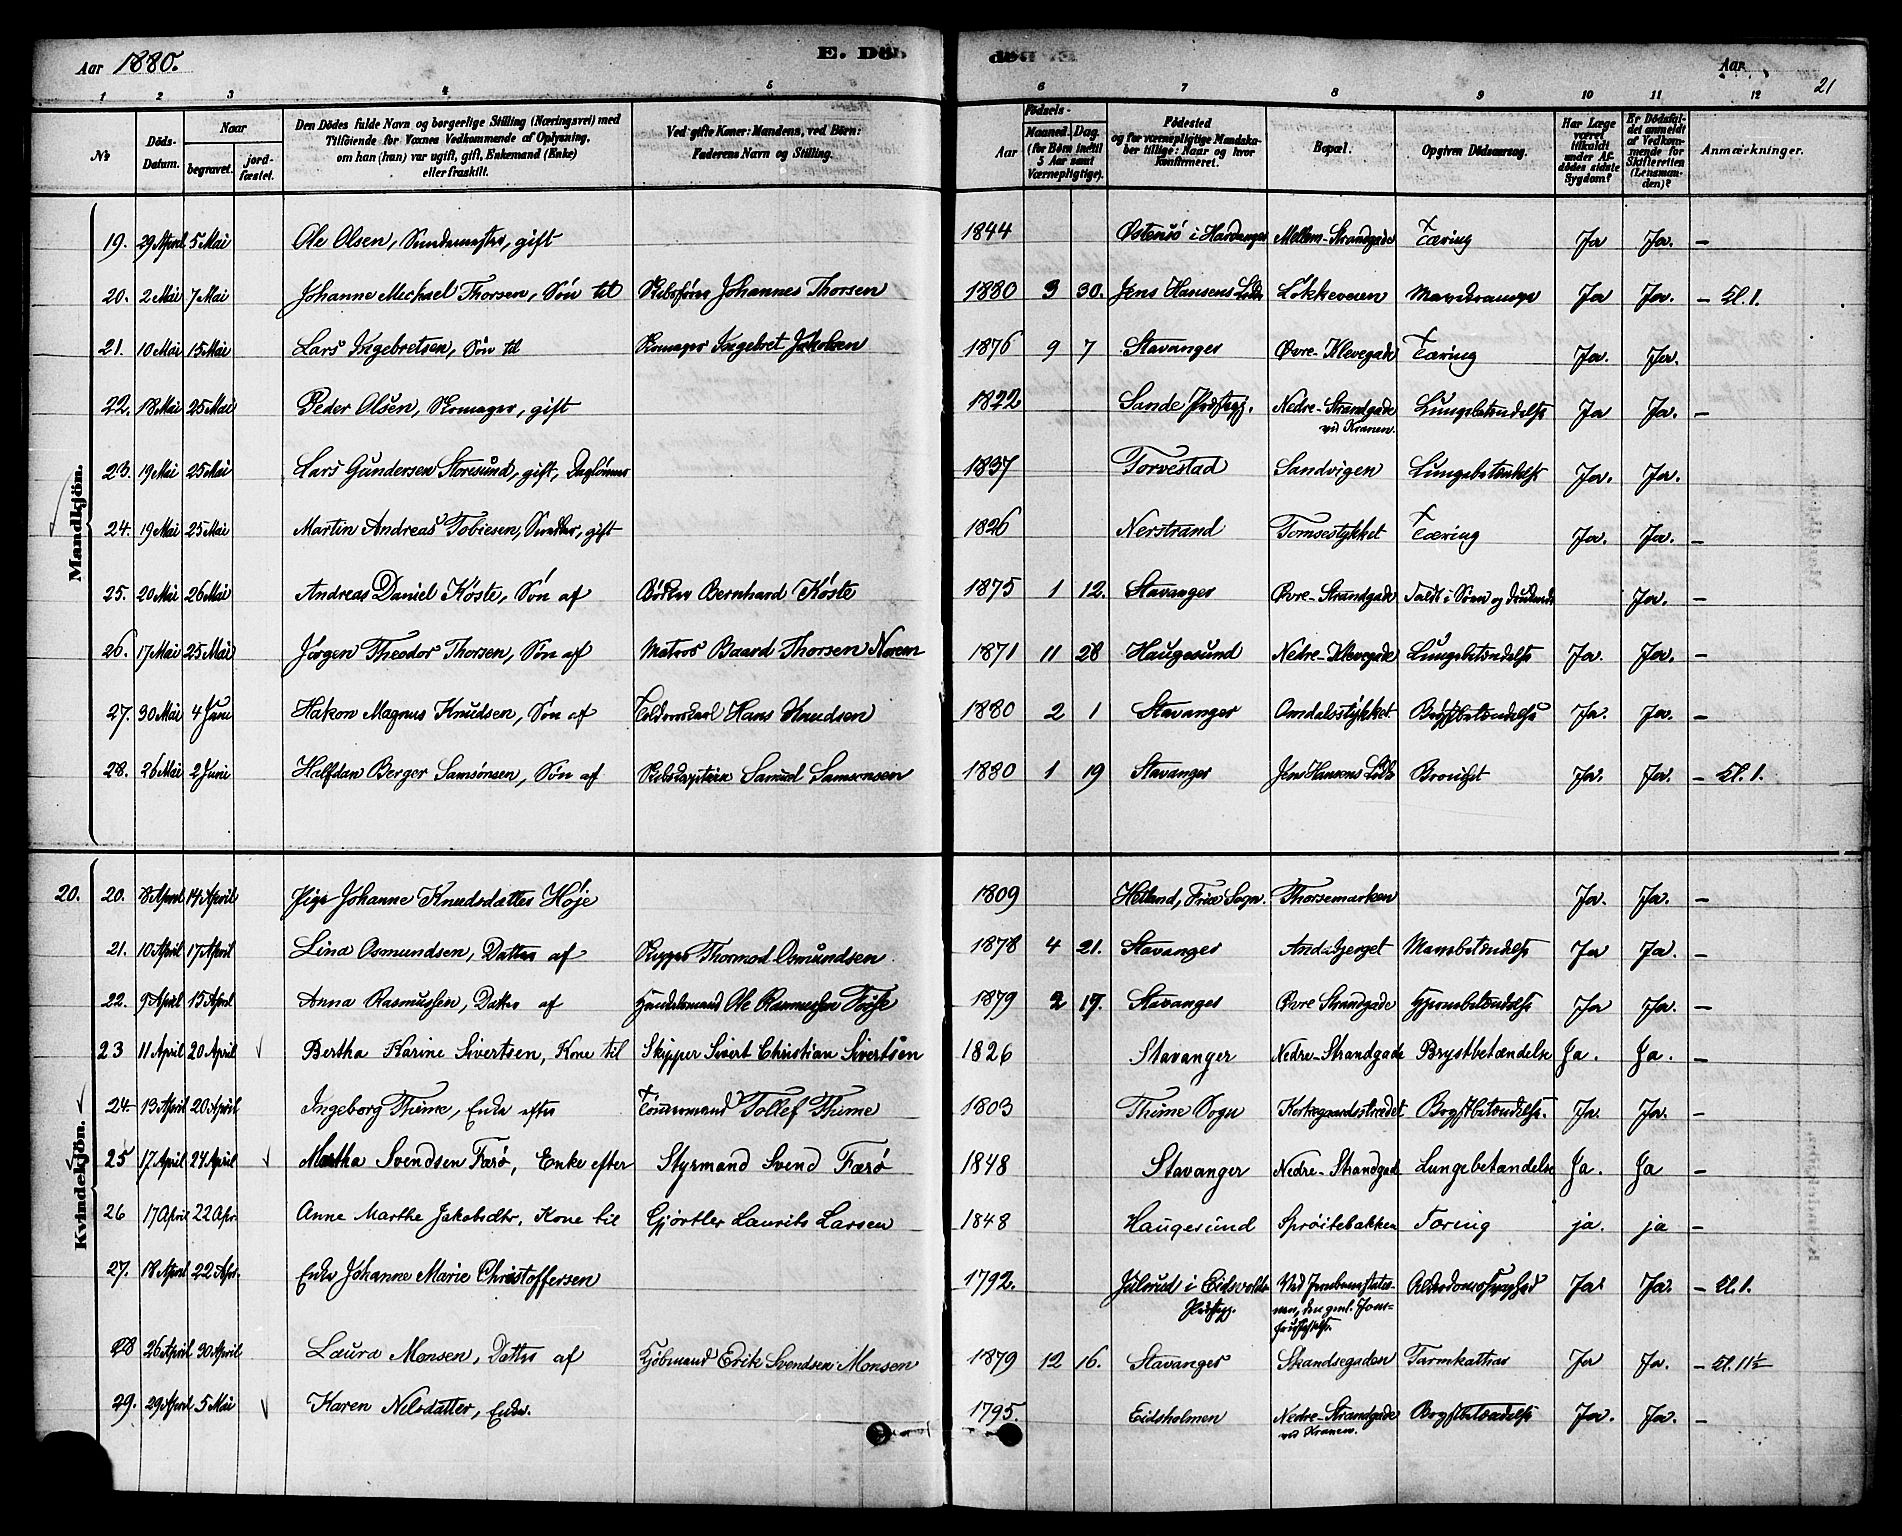 Aar 1880.
E. Død
Aar
21
1 2 3 4 5 6 7 8 9 10 11 12
No
Döds-Datum.
Naar
begravet.
jord-fæstet.
Den Dödes fulde Navn og borgerlige Stilling (Næringsvei) med Tilföiende for Voxnes Vedkommende af Oplysning, om han (hun) var ugift, gift, Enkemand (Enke) eller fraskilt.
Ved gifte Koner: Mandens, ved Börn: Faderens Navn og Stilling.
Aar
Födsels-
Maaned. Dag.
(for Börn indtil 5 Aar samt Værnepligtige).
Födested og for værnepligtige Mandskaber tillige: Naar og hvor konfirmeret.
Bopæl.
Opgiven Dödsaarsag.
Har Læge været tilkaldt under Afdödes sidste Sygdom?
Er Dödsfaldet anmeldt af Vedkommende for Skifteretten (Lensmanden)?
Anmærkninger.
Mandkjön.
19. 29 April 5 Mai Ole Olsen, gift 1844 Østensø i Hardanger Mellem-Strandgade Tæring Ja Ja. –
20. 2 Mai 7 Mai Johanne Michael Thorsen, Søn til Skibsfører Johannes Thorsen 1880 3 30. Jens Hansens Løkkeveien Ja Ja. – Kl. 1.
21. 10 Mai 15 Mai Lars Ingebretsen, Søn til Skomager Ingebret Jakobsen 1876 9 7 Stavanger Øvre-Klevegade Tæring Ja. Ja.
22. 18 Mai 25 Mai Peder Olsen, Skomager, gift 1822 Sande Præstegj. Nedre-Strandgade ved Kranen. Lungebetændelse Ja Ja. –
23. 19 Mai 25 Mai Lars Gundersen Storesund, gift, Daglønner 1837 Torvestad Sandvigen Lungebetændelse Ja. Ja.
24. 19 Mai 25 Mai Martin Andreas Tobiesen, Snedker, gift 1826 Nerstrand Tomsestykket Tæring Ja. Ja. –
25. 20 Mai 26 Mai Andreas Daniel Köste, Søn af Bødker Bernhard Köste 1875 1 12. Stavanger Øvre-Strandgade Faldt i Søen og druknede Ja. –
26. 17 Mai 25 Mai Jørgen Theodor Thorsen, Søn af Matros Baard Thorsen 1871 11 28 Haugesund Nedre-Klevegade Lungebetændelse Ja. Ja. –
27. 30 Mai 4 Juni Hakon Magnus Knudsen, Søn af Toldoverskarl Hans Knudsen 1880 2 1 Stavanger Omdalsstykket Brystbetændelse Ja. Ja. –
28. 26 Mai 2 Juni Halfdan Berger Samsønsen, Søn af Skibskaptein Samuel Samsonsen 1880 1 19 Stavanger Jens Hansens Ja. Ja. – Kl. 1.
Kvindekjön.
20. 20. 8 April 14 April Pige Johanne Knudsdatter Höje 1809 Hetland, Frue Sogn. Thorsemarken Ja. Ja. –
21. 10 April 17 April Lina Osmundsen, Datter af Skipper Thormod Osmundsen. 1878 4 21. Stavanger Andasberget Mavebetændelse Ja Ja. –
22. 9 April 15 April Anna Rasmussen, Datter af Handelsmand Ole Rasmussen 1879 2 17. Stavanger Øvre Strandgade Hjernebetændelse Ja Ja. –
23 11 April 20 April Bertha Karine Sivertsen, Kone til Skipper Sivert Christian Sivertsen 1826 Stavanger Nedre-Strandgade Brystbetændelse Ja. Ja. –
24. 13 April 20 April Ingeborg Thime, Enke efter Tømmermand Tollef Thime 1803 Thime Sogn Kirkegaardsstrædet Brystbetændelse. Ja. Ja. –
25 17 April 24 April Martha Svendsen Færö, Enke efter Styrmand Svend Færö 1848 Stavanger Nedre-Strandgade Lungebetændelse Ja. Ja –
26 17 April 22 Apr. Anne Marthe Jakobsdtr. Kone til Gjørtler Laurits Larsen 1848 Haugesund Sprøitebakken Tæring ja. ja –
27. 18 April 22 Apr. Enke Johanne Marie Christoffersen 1792. Julsrud i Eidsvolds Præstegj. Ved Alderdomssvaghed Ja. Ja. – Kl. 1.
28 26 April 30 April Laura Monsen, Datter af Kjøbmand Erik Svendsen Monsen 1879 12 16. Stavanger Strandsegaden Tarmkathar Ja Ja. – Kl. 11½
29. 29 April 5 Mai Karen Nilsdatter, Enke. 1795. Eidsholmen Nedre-Strandgade ved Kranen. Brystbetændelse Ja. Ja. –